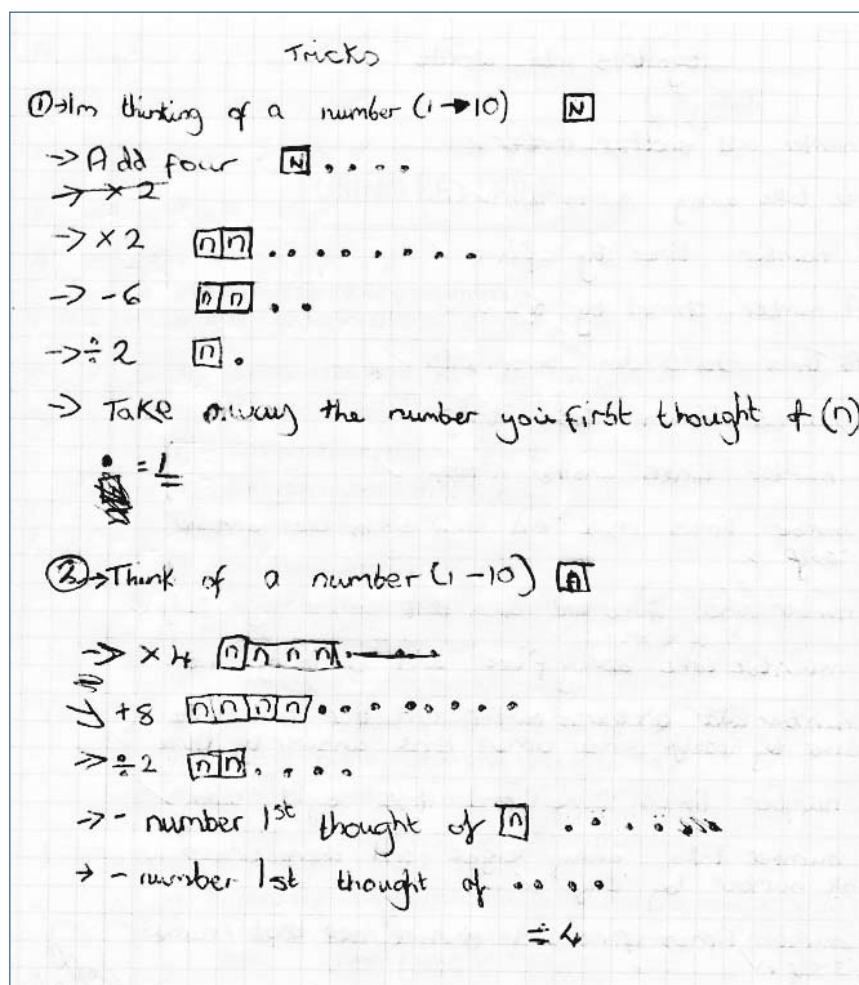 Tricks
① → Im thinking of a number (1 → 10) N
→ Add four N . . . .
→ × 2
→ × 2 n n . . . . . . . .
→ - 6 n n . .
→ ÷ 2 n .
→ Take away the number you first thought of (n)
. = 1
② → Think of a number (1 - 10) n
→ × 4 n n n n
→ + 8 n n n n . . . . . . . .
→ ÷ 2 n n . . . .
→ - number 1st thought of n . . . .
→ - number 1st thought of . . . .
= 4